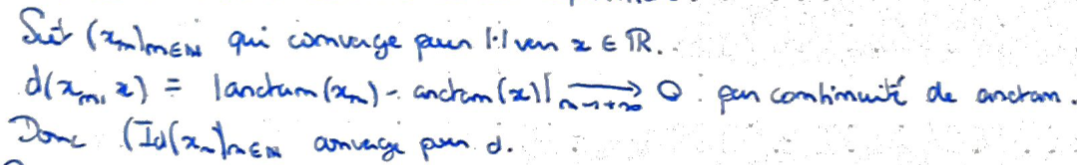 Soit (x_n)_{n∈ℕ} qui converge pour |·| vers x ∈ ℝ.
d(x_n, x) = |arctan(x_n) - arctan(x)| \xrightarrow[n→+∞]{} 0. par continuité de arctan.
Donc (Id(x_n))_{n∈ℕ} converge pour d.